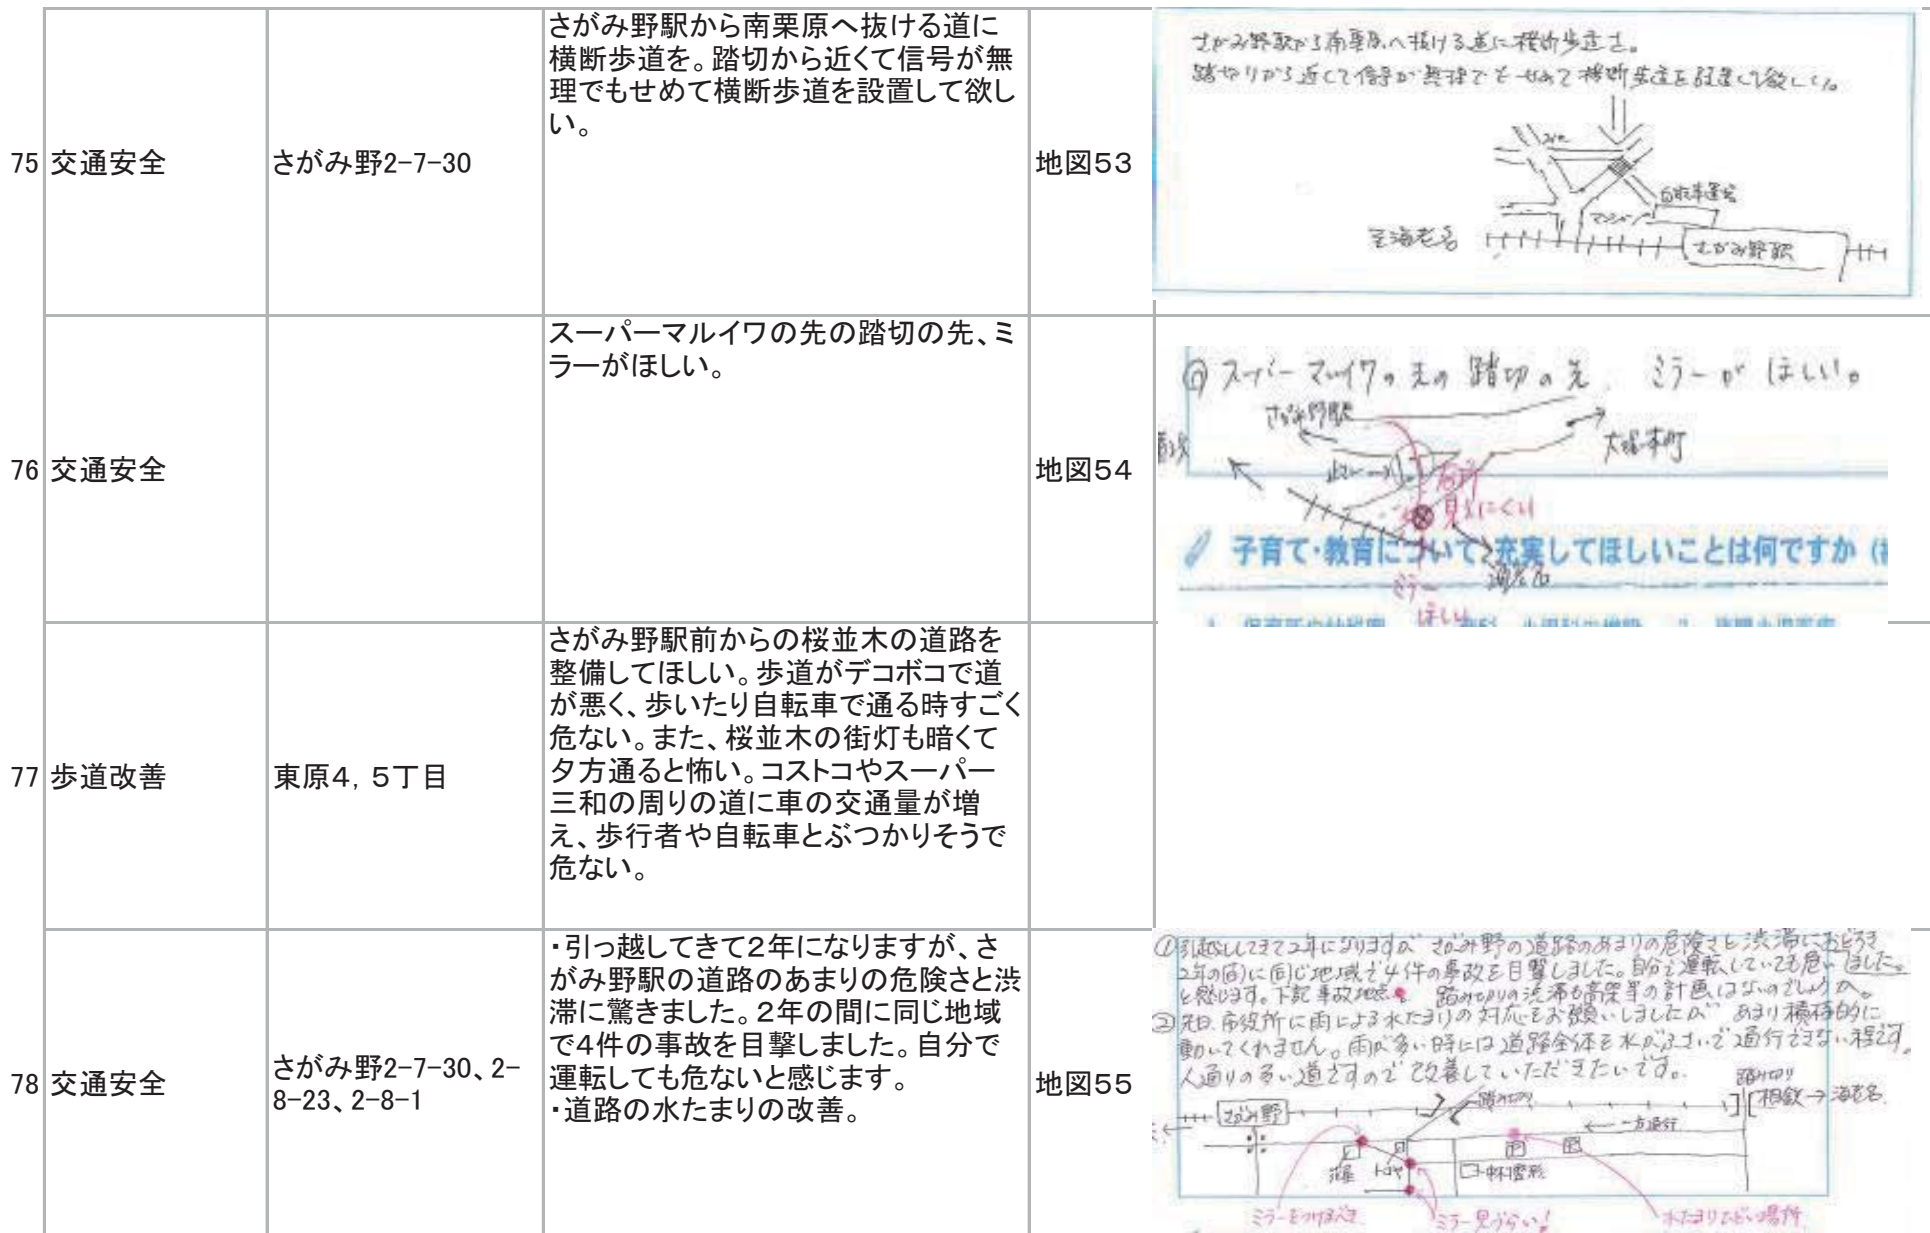 75
交通安全
さがみ野2-7-30
さがみ野駅から南栗原へ抜ける道に
横断歩道を。踏切から近くて信号が無
理でもせめて横断歩道を設置して欲し
い。
地図53
さがみ野駅から南栗原へ抜ける道に横断歩道を。
踏切りから近くて信号が無理でもせめて横断歩道を設置して欲しい。
マンション
至海老名
さがみ野駅
76
交通安全
スーパーマルイワの先の踏切の先、ミ
ラーがほしい。
地図54
スーパーマルイワの先の踏切の先、ミラーがほしい。
さがみ野駅
大塚本町
止マレ
右が
見えにくい
子育て・教育について、充実してほしいことは何ですか
海老名
ミラー
ほしい
77
歩道改善
東原4，5丁目
さがみ野駅前からの桜並木の道路を
整備してほしい。歩道がデコボコで道
が悪く、歩いたり自転車で通る時すごく
危ない。また、桜並木の街灯も暗くて
夕方通ると怖い。コストコやスーパー
三和の周りの道に車の交通量が増
え、歩行者や自転車とぶつかりそうで
危ない。
78
交通安全
さがみ野2-7-30、2-
8-23、2-8-1
・引っ越してきて2年になりますが、さ
がみ野駅の道路のあまりの危険さと渋
滞に驚きました。2年の間に同じ地域
で4件の事故を目撃しました。自分で
運転しても危ないと感じます。
・道路の水たまりの改善。
地図55
①引越ししてきて2年になりますが さがみ野の道路のあまりの危険さと渋滞におどろき
ました。
2年の間に同じ地域で4件の事故を目撃しました。自分で運転していても危い
と感じます。下記事故地点 踏み切りの渋滞も高架等の計画はないのでしょうか。
②先日、市役所に雨による水たまりの対応をお願いしましたが あまり積極的に
動いてくれません。雨が多い時には道路全体を水がふさいで通行できない程です。
人通りの多い道ですので改善していただきたいです。
踏み切り
相鉄→海老名
さがみ野
踏み切り
一方通行
ミラーをつけるべき
ミラー見づらい!
水たまりひどい場所